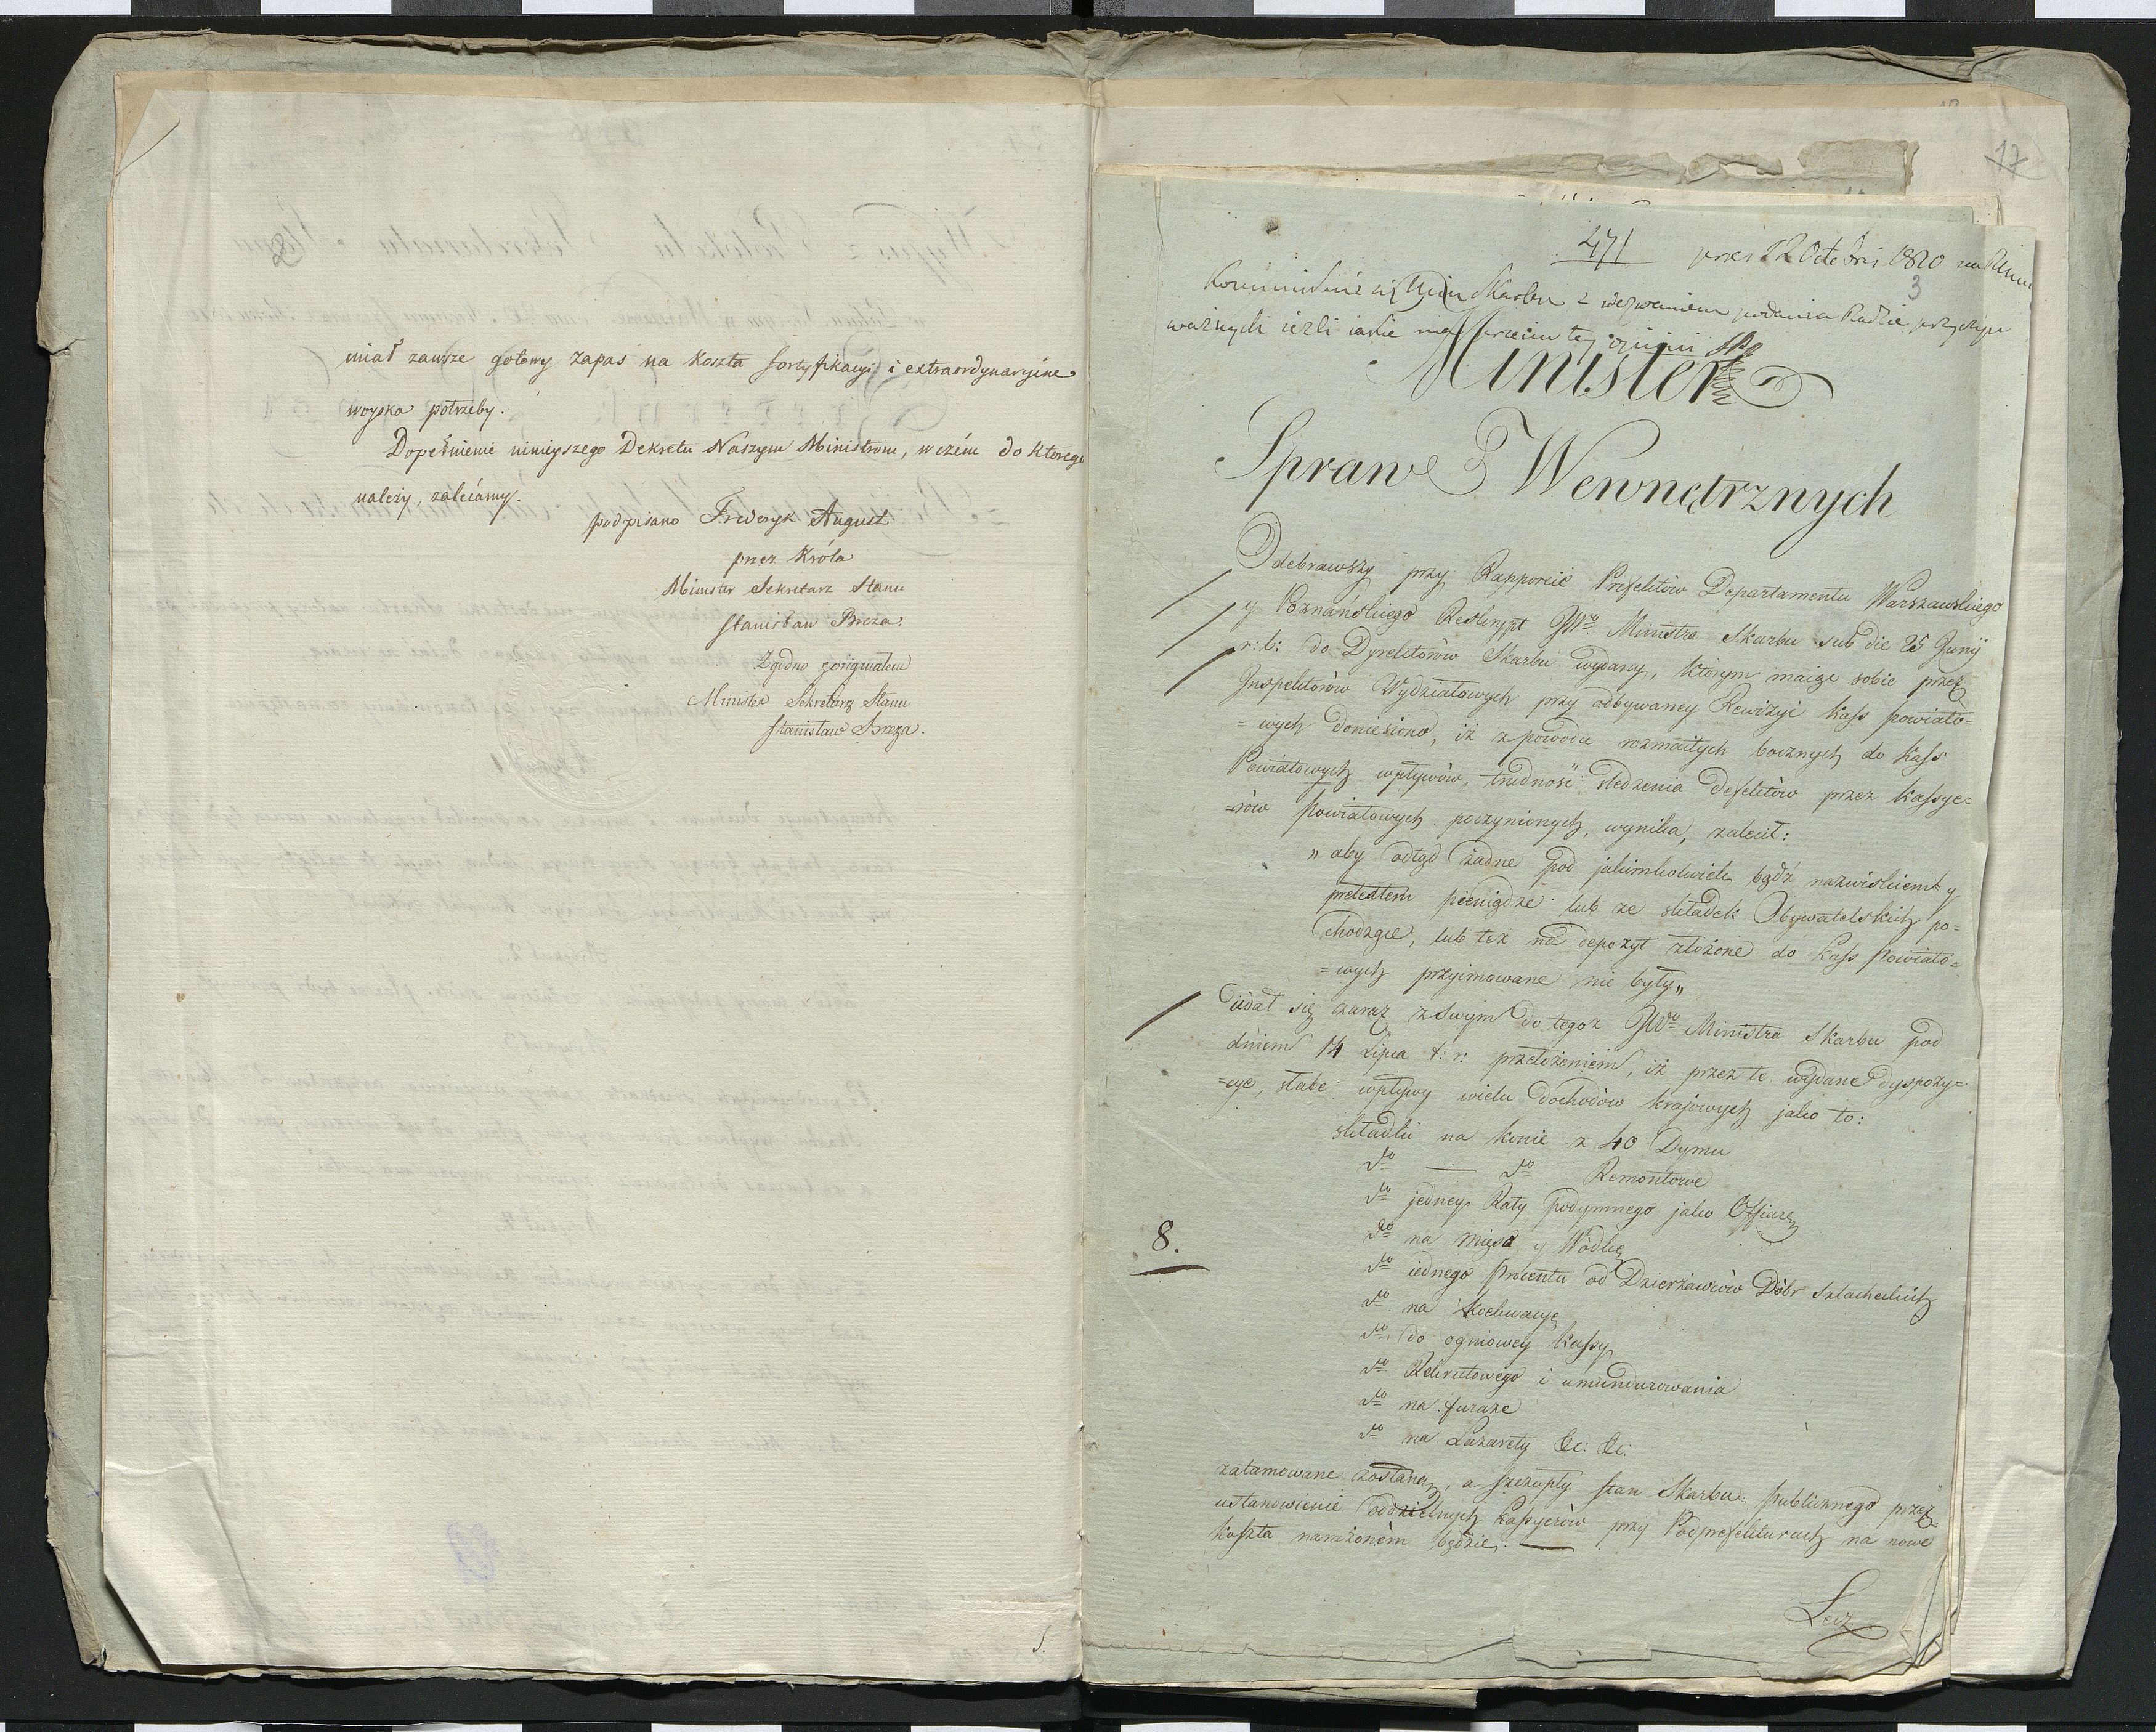 miał zawsze gotowy zapas na koszta fortyfikacyi i extraordynaryine
woyska potrzeby.
Dopełnienie ninieyszego Dekretu Naszym Ministrom, w czém do ktorego
należy, zalecamy.
podpisano Frederyk August
przez Króla
Minister Sekretarz Stanu
Stanisław Breza.
Zgodno z oryginałem
Minister Sekretarz Stanu
Stanisław Breza.
5.
17
471 pres 12 Octobris 1810
3
Skarbu z wezwaniem podania Radzie
ważnych ieżli iakie ma przeciw tey opinii
Minister
Spraw Wewnętrznych
Odebrawszy przy Rapporcie Prefektów Departamentu Warszawskiego
y Poznańskiego Reskrypt JWo Ministra Skarbu sub die 25 Junÿ
r: b: do Dyrektorów Skarbu wydany, którym maiąc sobie przez
Inspektorów Wydziałowych przy odbywaney Rewizyi Kass powiato=
=wych doniesiono, iż z powodu rozmaitych bocznych do Kass
Powiatowych wpływów, trudność śledzenia defektów przez Kassye=
=rów Powiatowych poczynionych, wynika, zalecił:
„ aby odtąd żadne pod jakimkolwiek bądź nazwiskiem y
pretextem pieniądze lub ze składek Obywatelskich po=
chodzące, lub też na depozyt złożone do Kass Powiato=
=wych przyimowane nie były„
udał się zaraz z swym do tegoż JWo Ministra Skarbu pod
dniem 14 Lipca t: r: przełożeniem, iż przez te wydane dyspozy=
=cye, słabe wpływy wielu dochodów krajowych jako to:
składki na konie z 40 Dymu
dto — dto Remontowe
dto jedney Raty podymnego jako Offiarę
8.
dto na mięso y Wódkę
dto iednego Procentu od Dzierżawców Dóbr Szlacheckich
dto na
dto do ogniowey Kassy
dto Rekrutowego i umundurowania
dto na furaże
dto na Lazarety &c: &c:
zatamowane zostaną, a szczupły stan Skarbu Publicznego przez
ustanowienie oddzielnych Kassyerów przy Podprefekturach na nowe
koszta narażonem będzie. —
Lecz